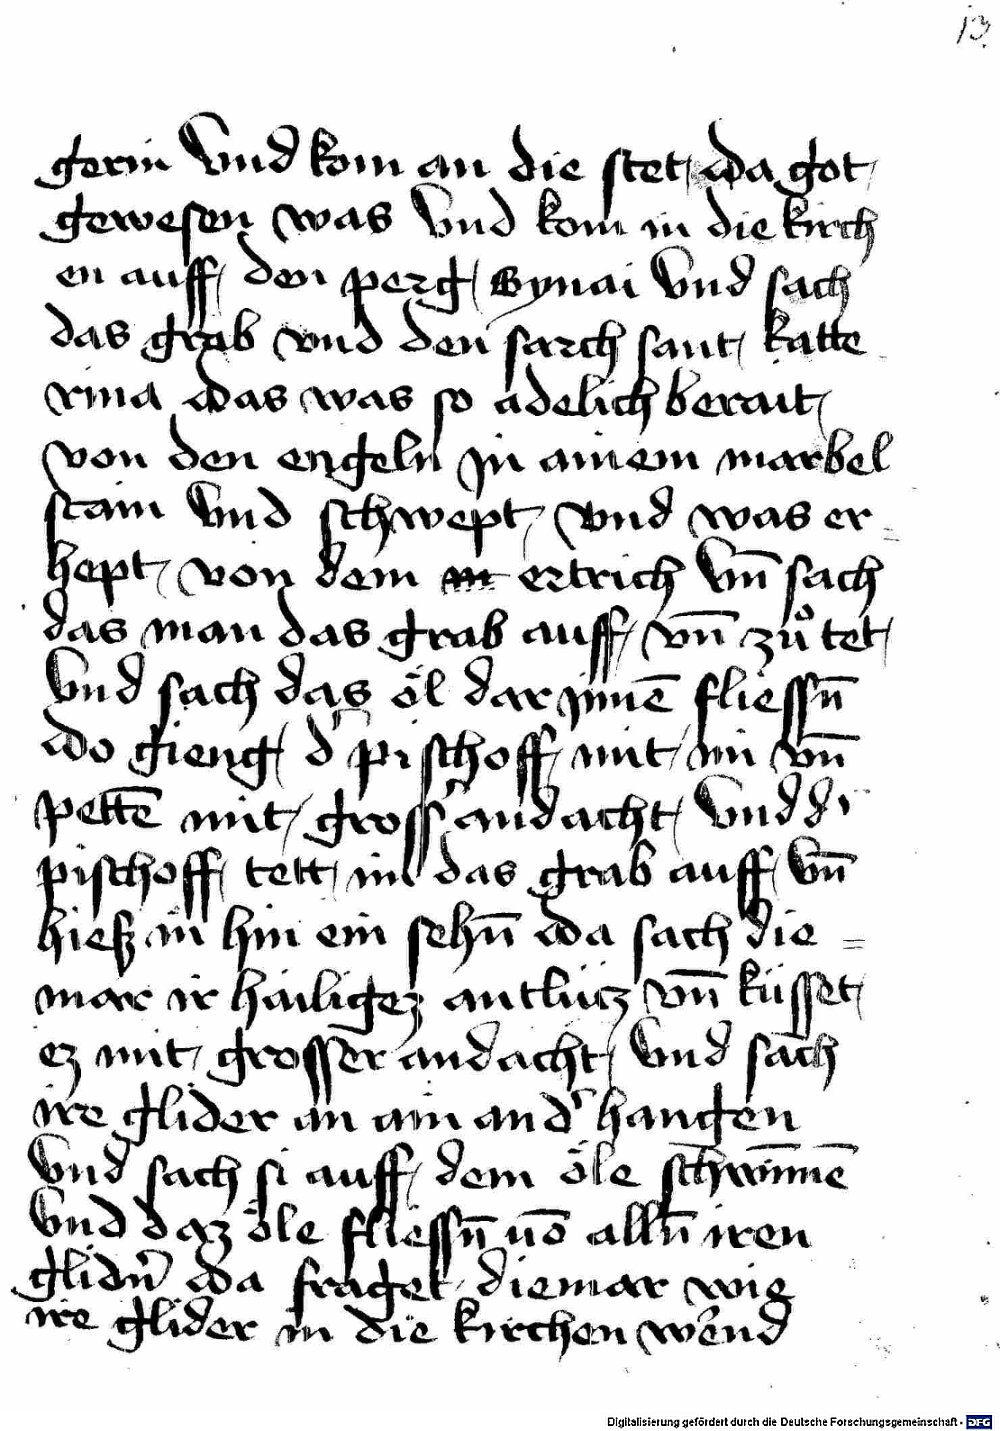 13
gerin Vnd kom an die stet da got
gewesen was Vnd kom in die kirch
en auff den perg Synai Vnd sach
das grab vnd den sarch sant katte
rina das was so adelich berait
von den engeln jn ainem marbel
stain Vnd schwept vnd was er
hept von dem ertrich Vn̄ sach
das man das grab auff vn̄ zuͦ tet
Vnd sach das öl dar jnnē fliessn̄
do gieng d' pischoff mit im vn̄
pettē mit gross' andacht Vnd d'
pischoff tett im das grab auff Vn̄
hiesz in hin ein sehn̄ da sach die
mar ir hailigez antlücz vn̄ küsset
ez mit grosser andacht Vnd sach
ire glider an ain and' hangen
Vnd sach si auff dem öle schwīmē
Vnd daz öle fliessn̄ vō alln̄ iren
glidn̄ da fraget diemar wie
ire glider in die kirchen wēnd
Digitalisierung gefördert durch die Deutsche Forschungsgemeinschaft - DFG